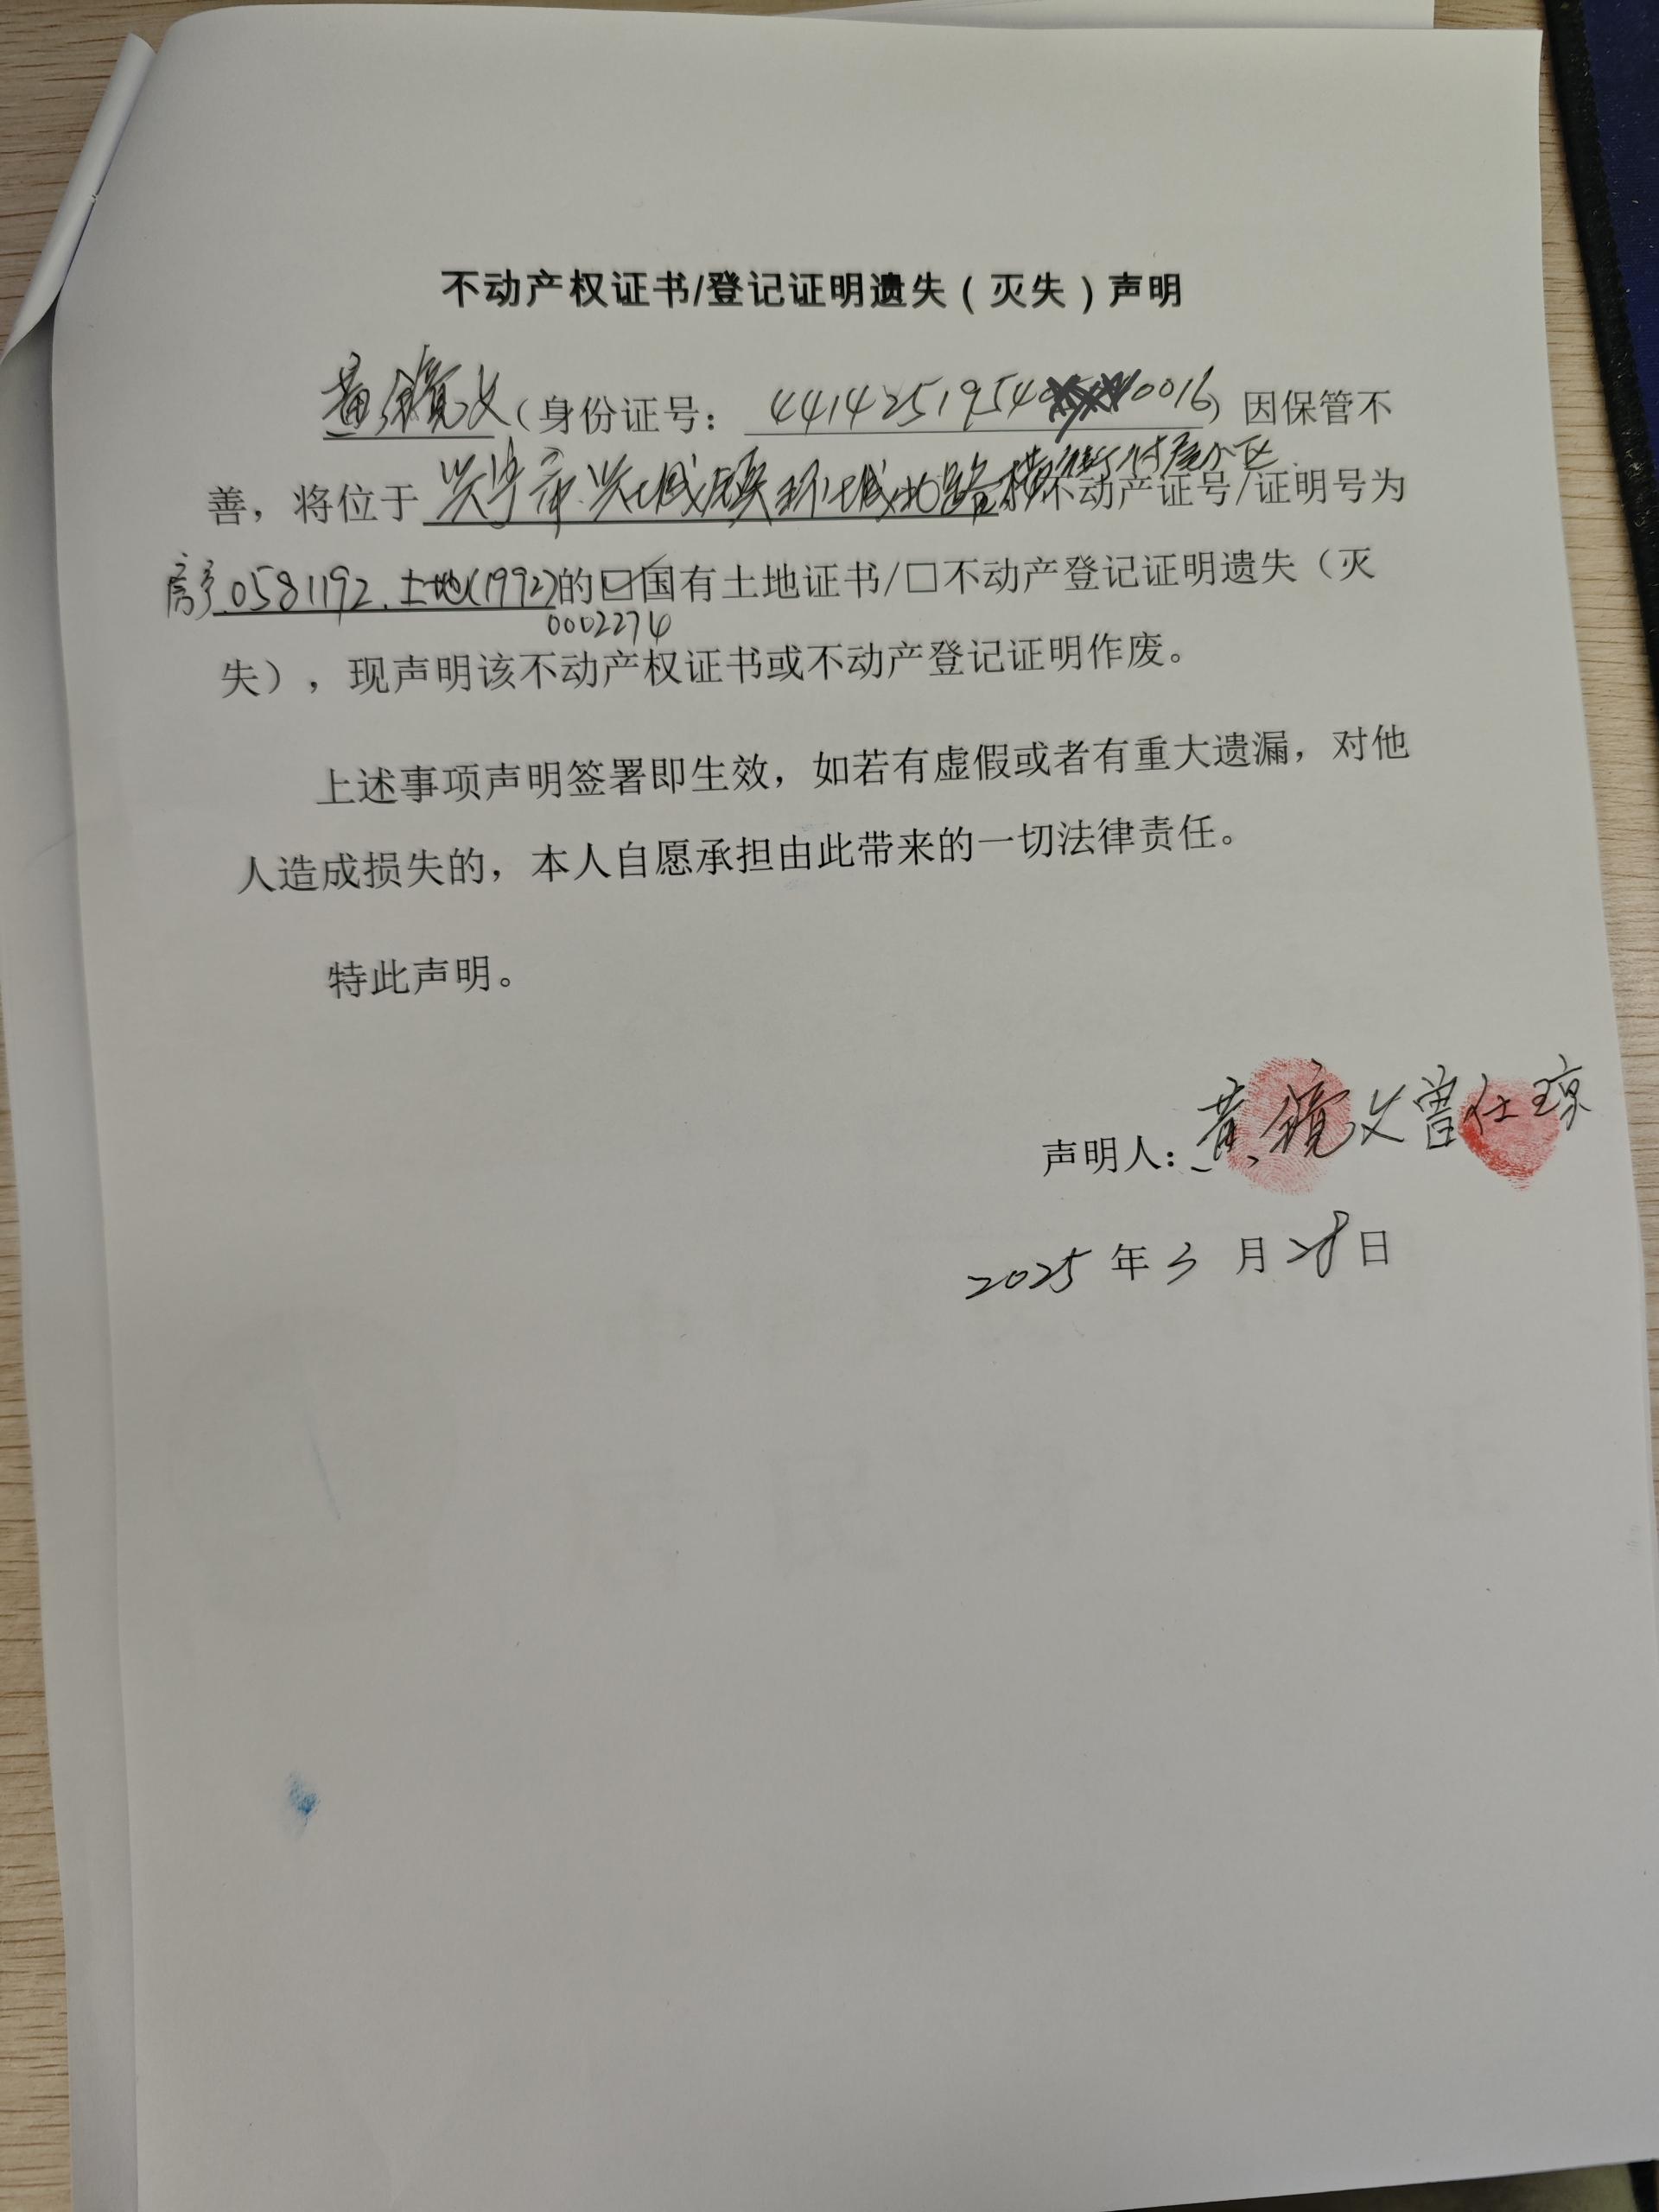 不动产权证书/登记证明遗失（灭失）声明
黄镜文（身份证号：44142519540016）因保管不
善，将位于兴宁市兴城镇环城北路横街付尾小区不动产证号/证明号为
房产0581192.土地(1992)的☑国有土地证书/□不动产登记证明遗失（灭
0002274
失），现声明该不动产权证书或不动产登记证明作废。
上述事项声明签署即生效，如若有虚假或者有重大遗漏，对他
人造成损失的，本人自愿承担由此带来的一切法律责任。
特此声明。
声明人：黄镜文曾仕琼
2025年3月28日